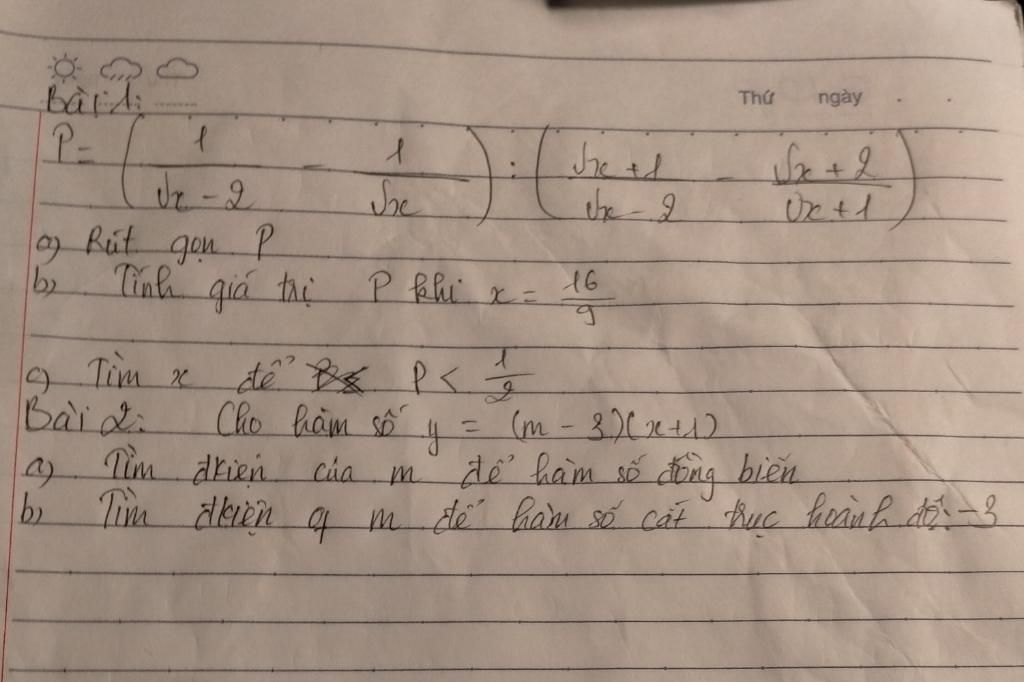 Thứ ngày
Bài 1:
P = (1/(√x - 2) - 1/√x) : ((√x + 1)/(√x - 2) - (√x + 2)/(√x + 1))
a) Rút gọn P
b) Tính giá trị P khi x = 16/9
c) Tìm x để P < 1/2
Bài 2: Cho hàm số y = (m - 3)(x+1)
a) Tìm đkiện của m để hàm số đồng biến
b) Tìm đkiện of m để hàm số cắt trục hoành độ: -3